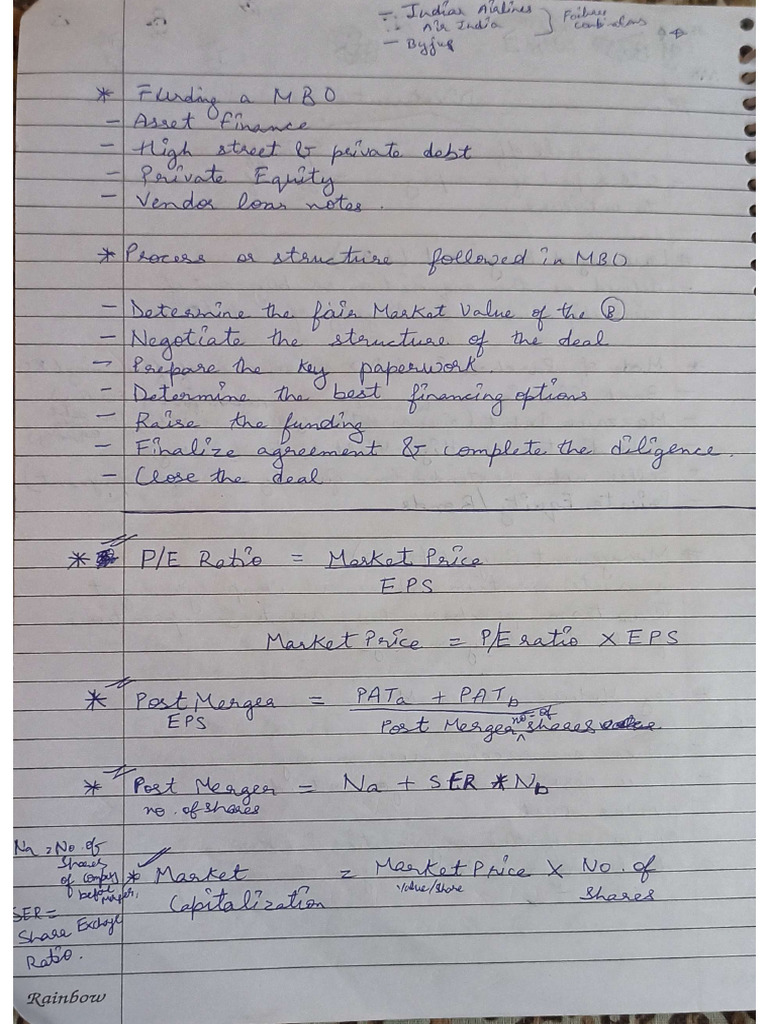 - Indian Airlines
Air India
- Byjus
Failure
* Funding a MBO
- Asset Finance
- High street & private debt
- Private Equity
- Vendor loan notes.
* Process or structure followed in MBO
- Determine the fair Market Value of the Ⓑ
- Negotiate the structure of the deal
- Prepare the key paperwork.
- Determine the best financing options
- Raise the funding
- Finalize agreement & complete the diligence.
- Close the deal
* P/E Ratio = Market Price
EPS
Market Price = P/E ratio × EPS
* Post Merger = PATa + PATb
EPS Post Merger no. of shares
* Post Merger = Na + SER * Nb
no. of shares
Na = No. of
shares
of company
before merger,
SER =
Share Exchange
Ratio.
* Market = Market Price × No. of
Capitalization value/share shares
Rainbow